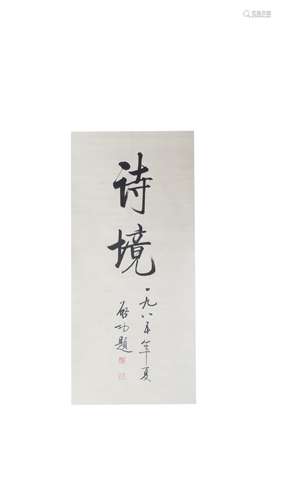 诗境
一九八五年夏
启功題